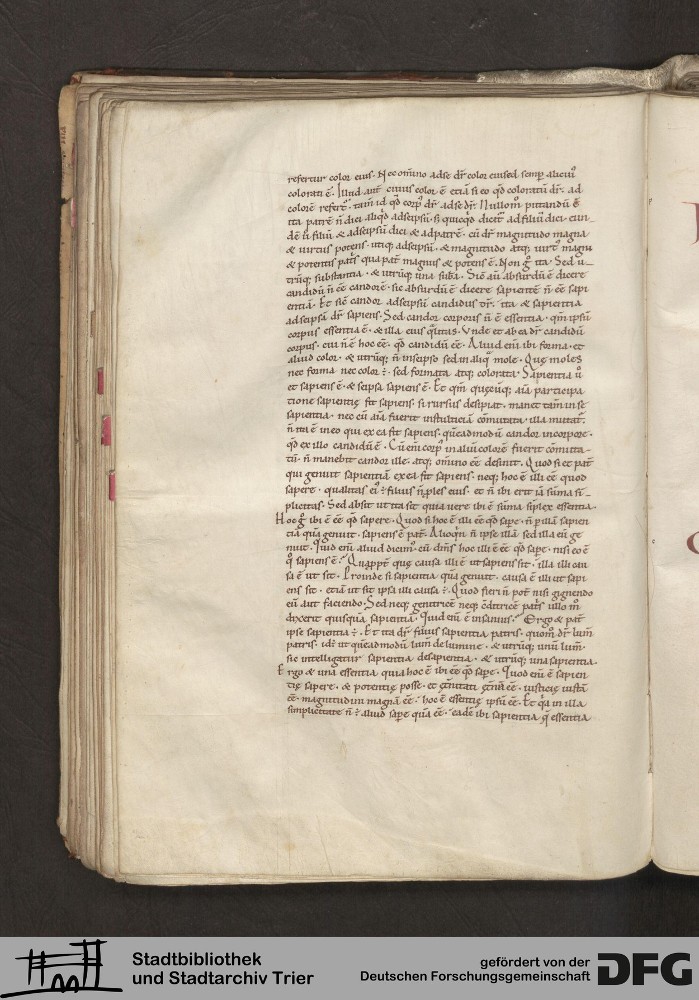 refertur color eius. Nec om̄ino adse dr̄ color eius sed semp̄ alicui᷒
colorati ē. Illud aut̄ cuius color ē etiā si eo qđ coloratū dr̄. ad
colorē refert᷒. tam̄ id qđ corp᷒ dr̄ adse dr̄. Nullom̊ putandū ē
ita patrē n̄ dici aliqđ adseipsū. sꝫ quicqđ dicit᷒ ad filiū dici. eun-
dē ū filiū & adseipsū dici & adpatrē. cū dr̄ magnitudo magna
& uirtus potens. utiq; adseipsū. & magnitudo atq; uirt᷒ magni
& potentis pat̄s qua pat̄ magnus & potens ē. Non ḡ ita. Sed u-
trūq; substantia. & utrūq; una sub̄a. Sic̄ aū absurdū ē dicere
candidū n̄ ēē candorē. sic absurdū ē dicere sapientē n̄ ēē sapi
entiā. Et sic̄ candor adseipsū candidus dr̄. ita & sapientia
adseipsā dr̄ sapiens. Sed candor corporis n̄ ē essentia. qm̄ ipsū
corpus essentia ē. & illa eius q̄litas. Vnde et ab ea dr̄ candidū
corpus. cui n̄ ē hoc ēē. qđ candidū ēē. Aliud eni ibi forma. et
aliud color. & utrūq; n̄ inseipso sed in aliq̊ mole. Quę moles
nec forma nec color ÷. sed formata atq; colorata. Sapientia ů
et sapiens ē. & seipsa sapiens ē. Et qm̄ quęcūq; aīa participa
tione sapientię fit sapiens. si rursus desipiat. manet tam̄ in se
sapientia. nec cū aīa fuerit instultitiā cōmutata. illa mutat᷒.
n̄ ita ē in eo qui ex ea fit sapiens. quēadmodū candor incorpore.
qđ ex illo candidū ē. Cū enī corp᷒ in aliū colorē fuerit cōmuta-
tū. n̄ manebit candor ille. atq; om̄ino ēē desinit. Quod si et pat᷒
qui genuit sapientiā ex ea fit sapiens. neq; hoc ē illi ēē quod
sapere. qualitas ei᷒ ÷ filius n̄ ples eius. et n̄ ibi erit iā sūma si-
plicitas. Sed absit ut ita sit quia uere ibi ē sūma siplex essentia.
Hoc ḡ ibi ē ēē qđ sapere. Quod si hoc ē illi ēē qđ sap̄e. n̄ p illā sapien
tiā quā genuit. sapiens ē pat᷒. Alioq̄n n̄ ipse illā. sed illa eū ge
nuit. Quid enī aliud dicim᷒. cū dm̄s hoc illi ē ēē qđ sap̄e. nisi eo ē
q̊ sapiens ē? Quapp̄t quę causa illi ē ut sapiens sit. illa illi cau
sa ē ut sit. Proinde si sapientia quā genuit. causa ē illi ut sapi
ens sit. etiā ut sit ipsa illi causa ÷. Quod fieri n̄ pot̄ nisi gignendo
eū aut faciendo. Sed neq; genitricē neq; cōditricē pat̄s ullo m̊
dixerit quisquā sapientiā. Quid enī ē insanius? Ergo & pat᷒
ipse sapientia ÷. Et ita dr̄ filius sapientia patris. quom̊ dr̄ lum̄
patris. id ÷ ut quēadmodū lum̄ de lumine. & utrūq; unū lum̄.
sic intelligatur sapientia desapientia. & utrūq; una sapientia.
Ergo & una essentia quia hoc ē ibi ēē qđ sap̄e. Quod enī ē sapien
tię sapere. & potentię posse. et etn̄itati etn̄ā ēē. iusticię iustā
ēē. magnitudini magnā ēē. hoc ē essentię ipsū ēē. Et q̄a in illa
simplicitate n̄ ÷ aliud sap̄e quā ēē. eadē ibi sapientia q̄ essentia
Stadtbibliothek
und Stadtarchiv Trier
gefördert von der
Deutschen Forschungsgemeinschaft
DFG